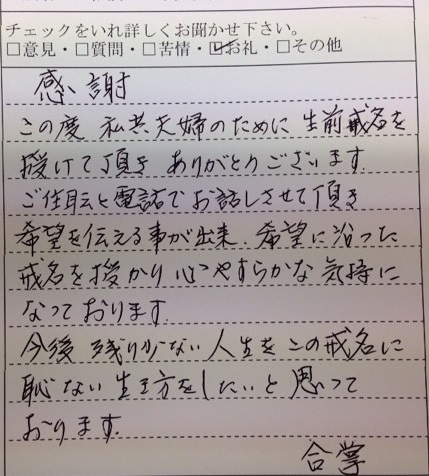 チェックをいれ詳しくお聞かせ下さい。
□意見・□質問・□苦情・☑お礼・□その他
感謝
この度 私共夫婦のために 生前戒名を
授けて頂き ありがとうございます.
ご住職と電話でお話しさせて頂き
希望を伝える事が出来、希望に沿った
戒名を授かり 心やすらかな気持に
なっております.
今後 残り少ない人生をこの戒名に
恥ない生き方をしたいと思って
おります.
合掌